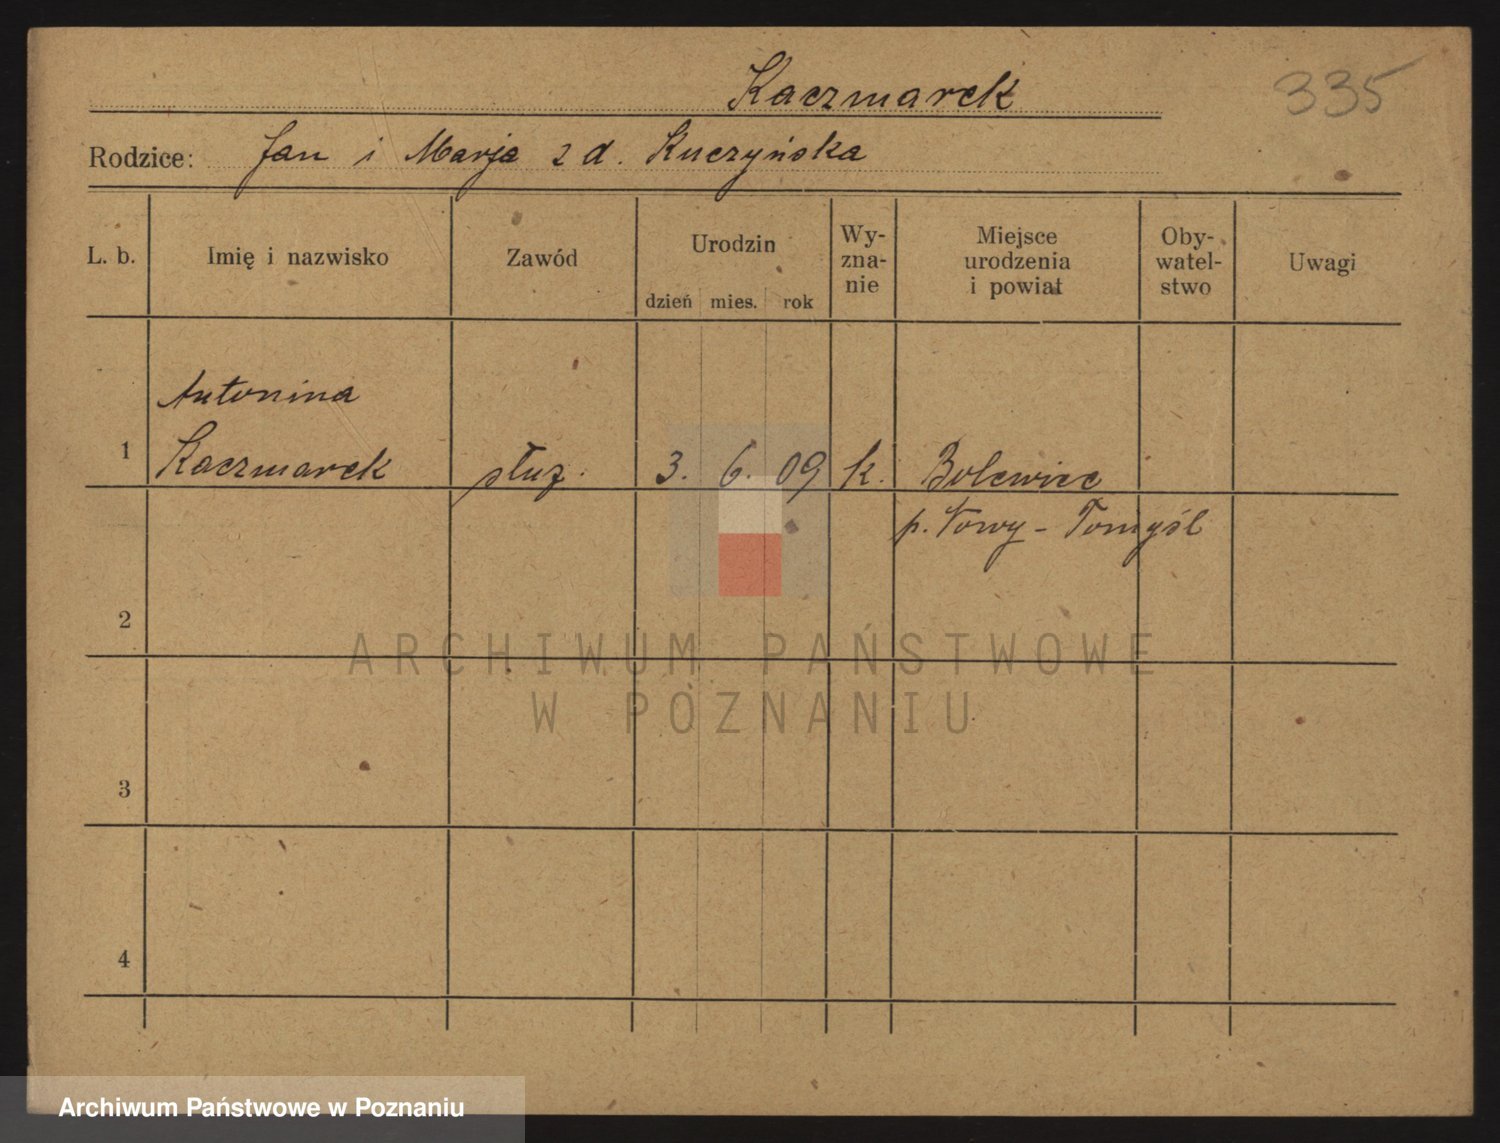 Kaczmarek
335
Rodzice: Jan i Marja z d. Kuczyńska
L. b.
Imię i nazwisko
Zawód
Urodzin
dzień mies. rok
Wy-
zna-
nie
Miejsce
urodzenia
i powiat
Oby-
watel-
stwo
Uwagi
Antonina
1 Kaczmarek służ. 3. 6. 09 k. Bolewice
p. Nowy-Tomyśl
2
ARCHIWUM PAŃSTWOWE
W POZNANIU
3
4
Archiwum Państwowe w Poznaniu